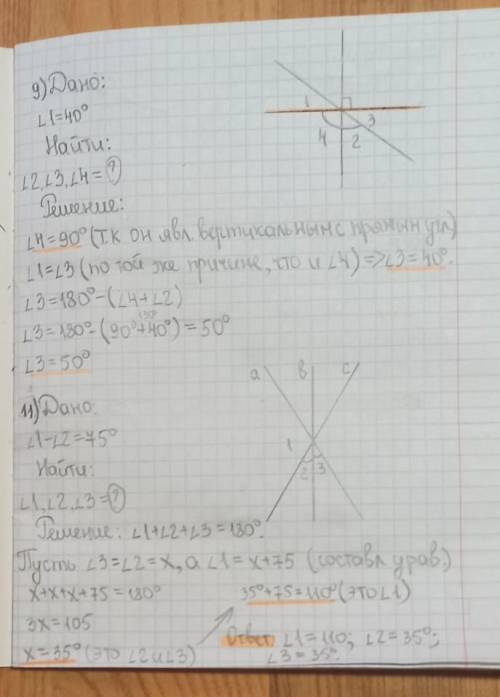 9) Дано:
∠1=40°
Найти:
∠2,∠3,∠4=?
Решение:
∠4=90° (т.к он явл. вертикальным с прямым угл)
∠1=∠3 (по той же причине, что и ∠4) => ∠3=40°.
∠3=180°-(∠4+∠2)
∠3=180°-(90°+40°)=50°
130°
∠3=50°
1
3
4
2
11) Дано:
∠1-∠2=75°
Найти:
∠1,∠2,∠3=?
a b c
1
2 3
Решение: ∠1+∠2+∠3=180°.
Пусть ∠3=∠2=x, а ∠1=x+75 (составл урав.)
x+x+x+75=180°
3x=105
x=35° (это ∠2 и ∠3)
35°+75=110° (это ∠1)
Ответ: ∠1=110; ∠2=35°;
∠3=35°.